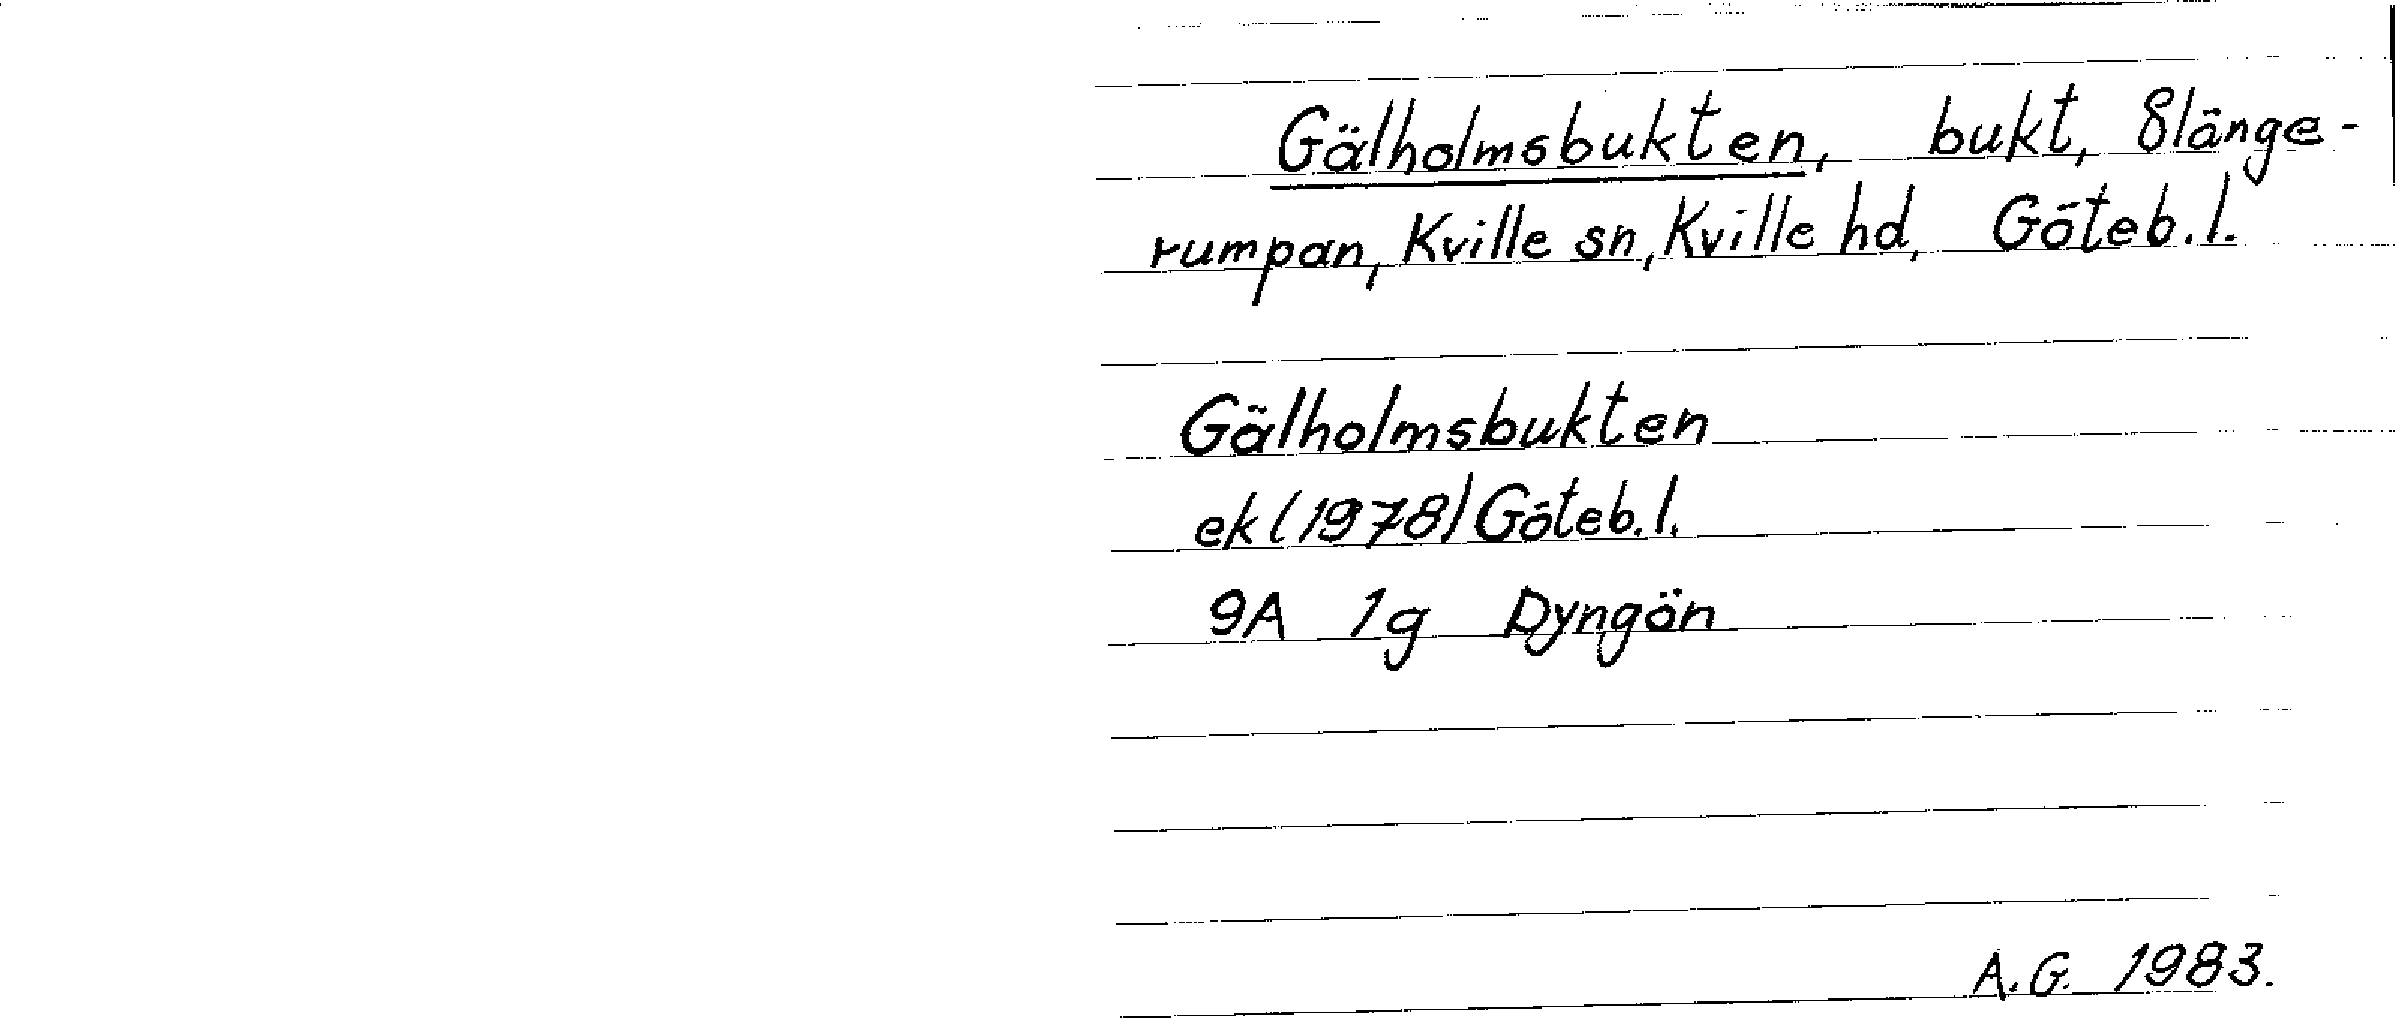 Gälholmsbukten, bukt, Slänge-
rumpan, Kville sn, Kville hd, Göteb.l.
Gälholmsbukten
ek (1978) Göteb.l.
9A 1g Dyngön
A.G. 1983.